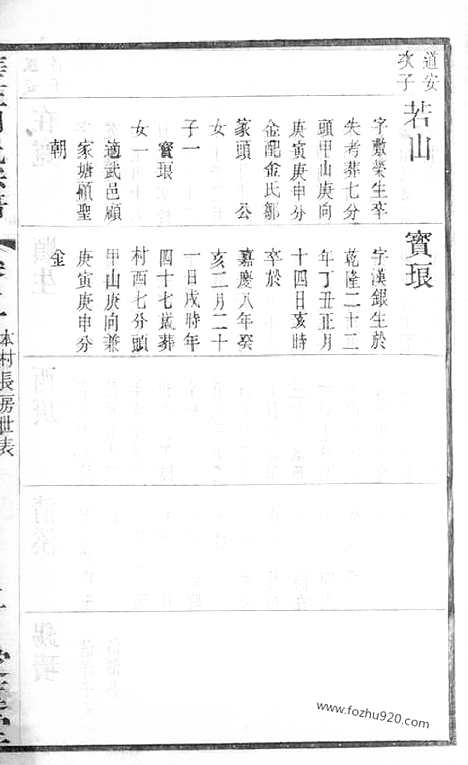 道安
次子
若山
字敷榮生卒
失考葬七分
頭甲山庚向
庚寅庚申分
金配金氏鄒
篆頭 公
女
子一
寶琅
女一
適武邑顧
家塘顧聖
朝
寶琅
字漢銀生於
乾隆二十二
年丁丑正月
十四日亥時
卒於
嘉慶八年癸
亥二月二十
一日戌時年
四十七歲葬
村西七分頭
甲山庚向兼
庚寅庚申分
金
本村長房世表
www.fozhu920.com